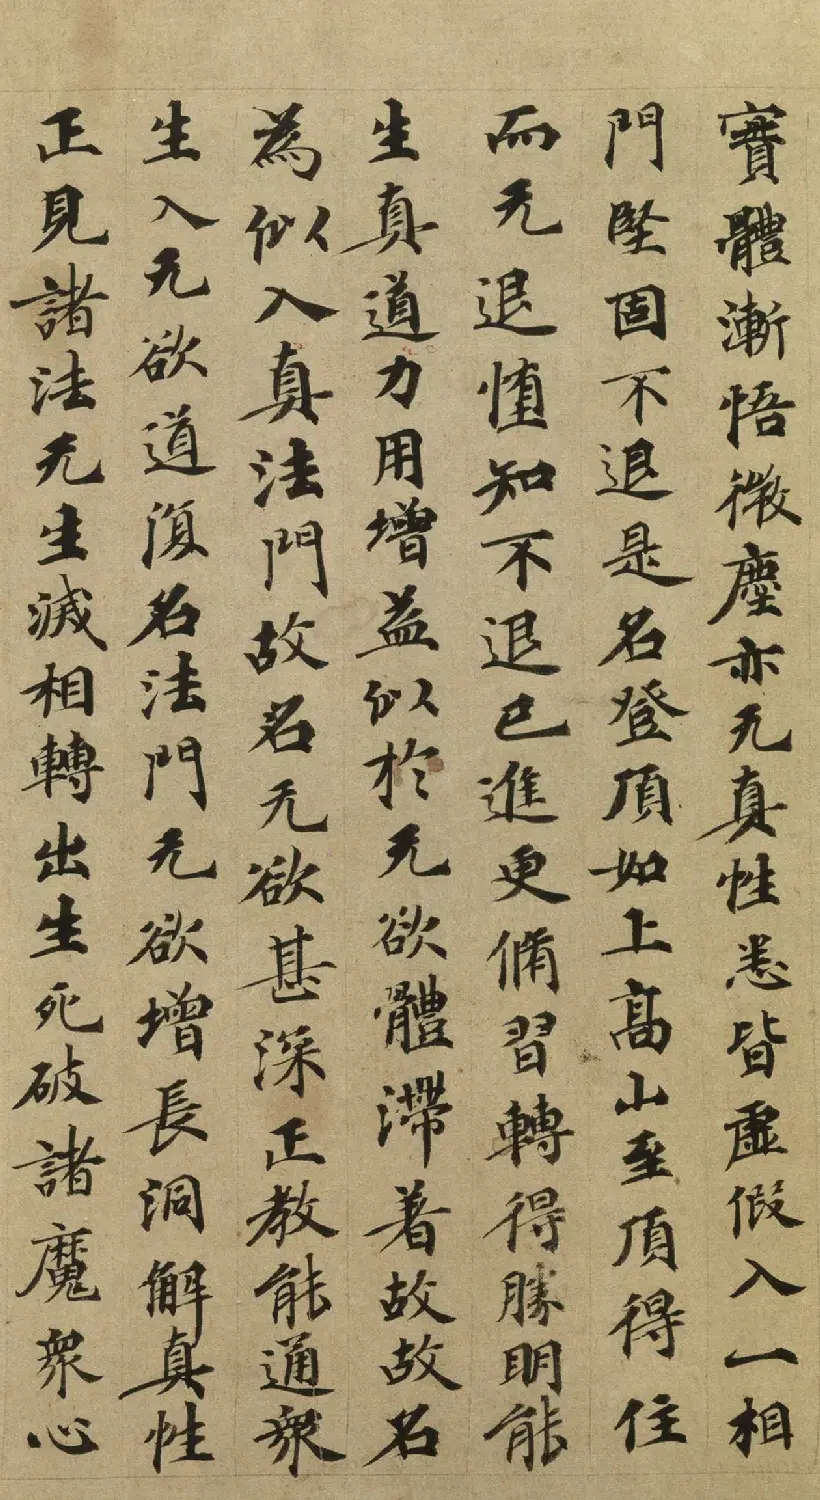 實體漸悟微塵亦无真性悉皆虛假入一相
門堅固不退是名登頂如上高山至頂得住
而无退懂知不退已進更脩習轉得勝明能
生真道力用增益似於无欲體滯著故故名
為似入真法門故名无欲甚深正教能通衆
生入无欲道復名法門无欲增長洞解真性
正見諸法无生滅相轉出生死破諸魔衆心